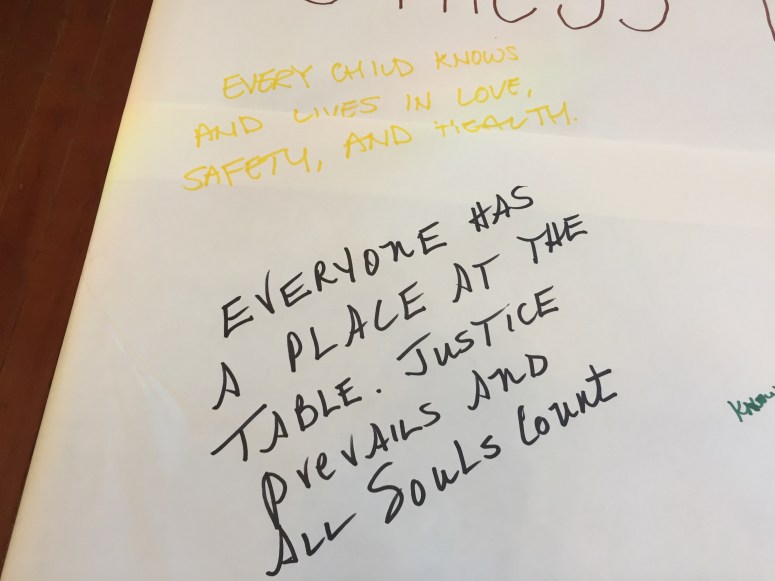 EVERY CHILD KNOWS
AND LIVES IN LOVE,
SAFETY, AND HEALTH.
EVERYONE HAS
A PLACE AT THE
TABLE. JUSTICE
PREVAILS AND
ALL SOULS COUNT